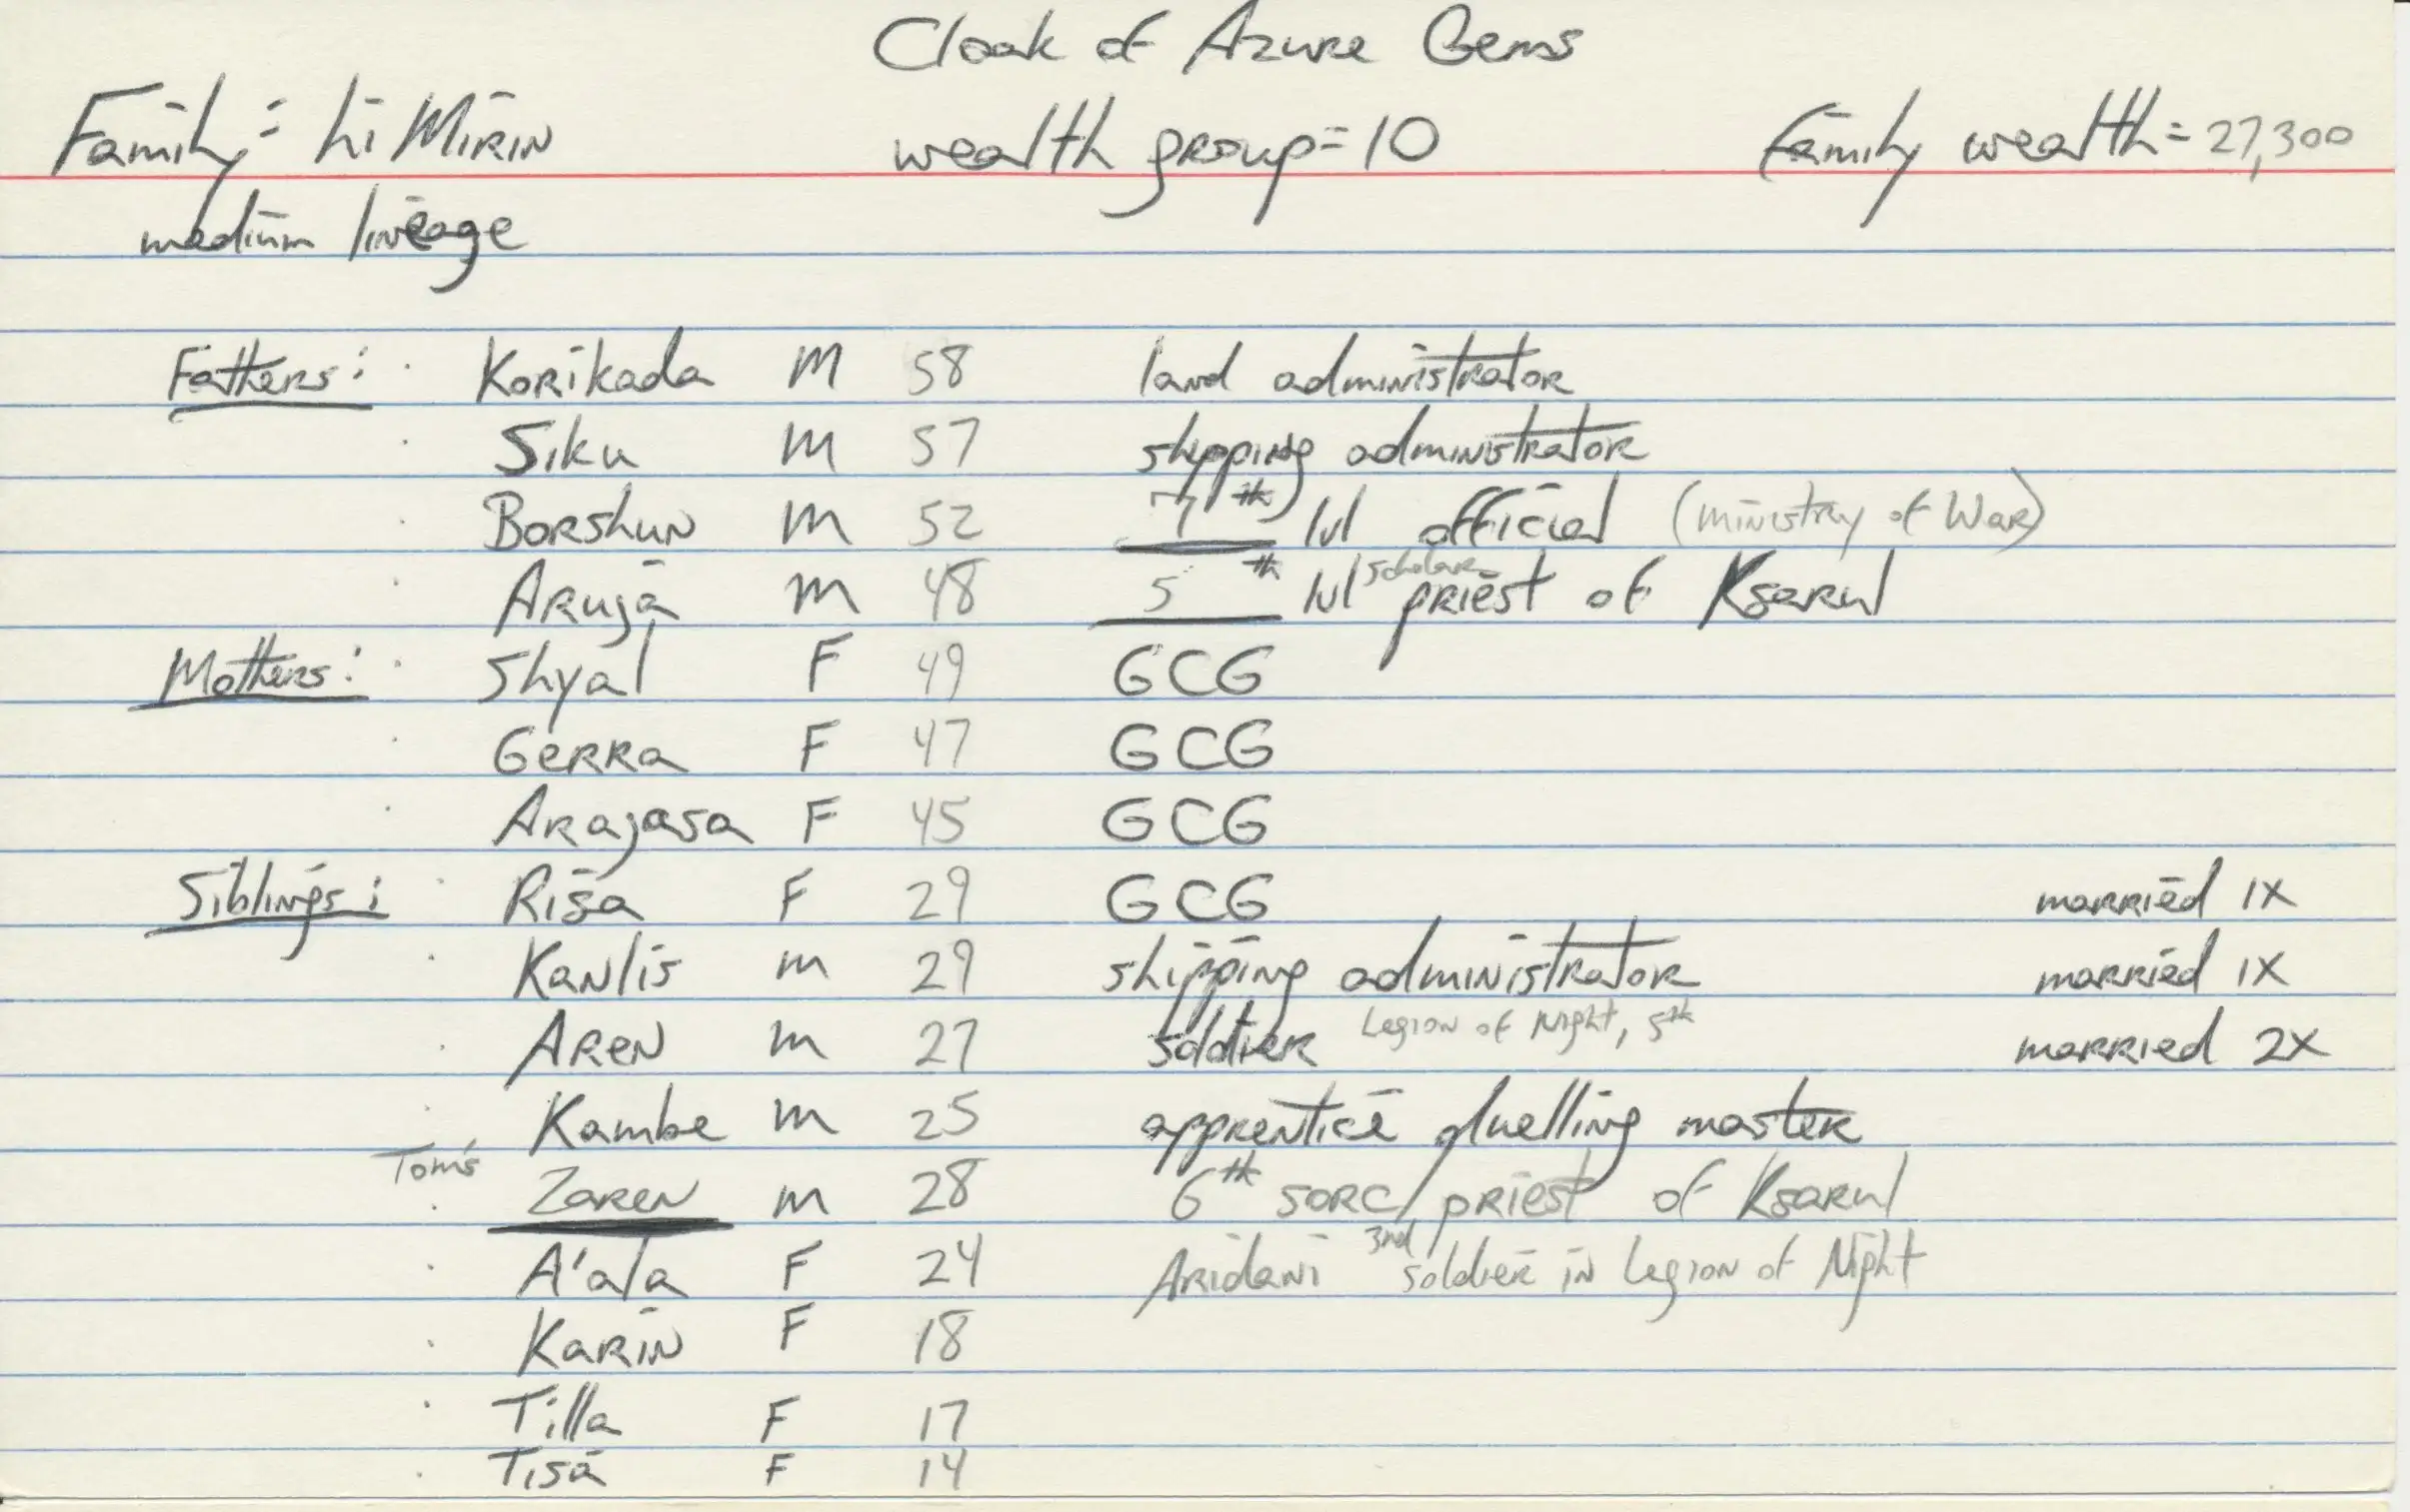 Cloak of Azure Gems
Family: hi Mirin wealth group=10 Family wealth=27,300
medium lineage
Fathers: Korikada M 58 land administrator
Siku M 57 shipping administrator
Borshun M 52 7th lvl official (Ministry of War)
Aruja M 48 5th lvl scholar priest of Ksarul
Mothers: Shyal F 49 GCG
Gerra F 47 GCG
Arajasa F 45 GCG
Siblings: Risa F 29 GCG married 1X
Kanlis M 29 shipping administrator married 1X
Aren M 27 soldier Legion of Night, 5th married 2X
Kambe M 25 apprentice duelling master
Tom's Zaren M 28 6th sorc/priest of Ksarul
A'ala F 24 Aridani 3rd soldier in Legion of Night
Karin F 18
Tilla F 17
Tisa F 14